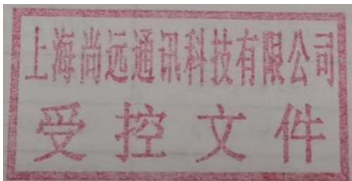 上海尚远通讯科技有限公司
受控文件